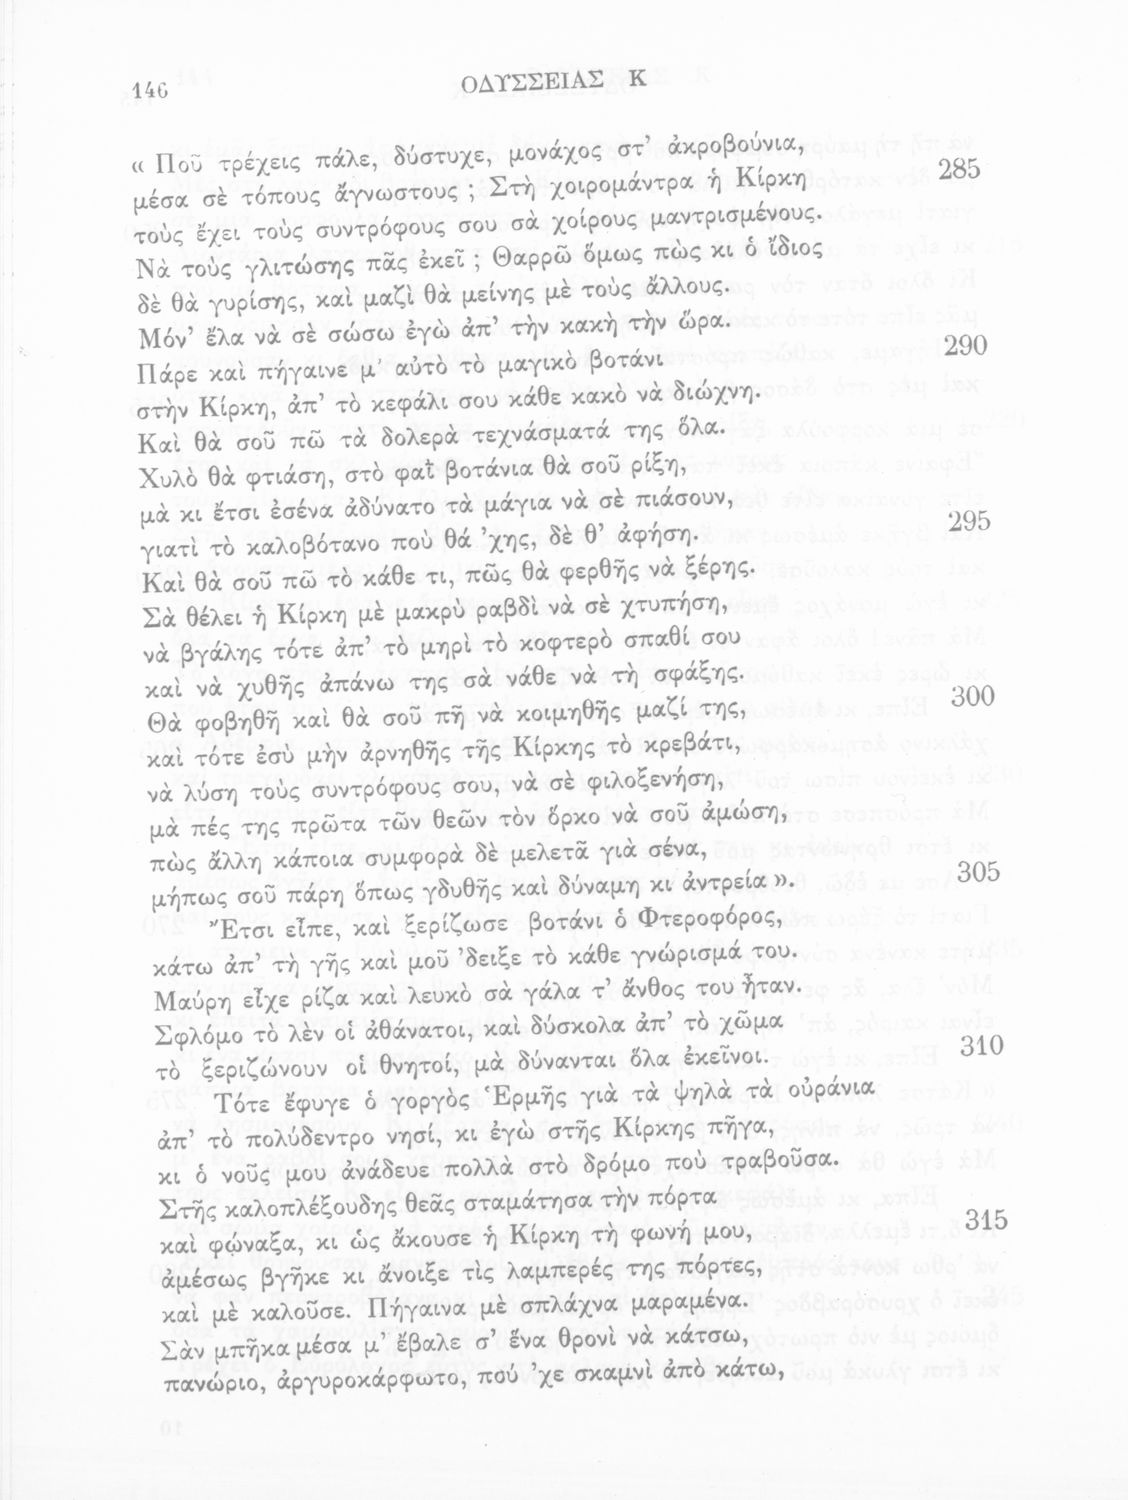 146
ΟΔΥΣΣΕΙΑΣ Κ
« Ποῦ τρέχεις πάλε, δύστυχε, μονάχος στ’ ἀκροβούνια,
μέσα σὲ τόπους ἄγνωστους ; Στὴ χοιρομάντρα ἡ Κίρκη 285
τοὺς ἔχει τοὺς συντρόφους σου σὰ χοίρους μαντρισμένους.
Νὰ τοὺς γλιτώσης πᾶς ἐκεῖ ; Θαρρῶ ὅμως πὼς κι ὁ ἴδιος
δὲ θὰ γυρίσης, καὶ μαζὶ θὰ μείνης μὲ τοὺς ἄλλους.
Μόν’ ἔλα νὰ σὲ σώσω ἐγὼ ἀπ’ τὴν κακὴ τὴν ὥρα.
Πάρε καὶ πήγαινε μ’ αὐτὸ τὸ μαγικὸ βοτάνι 290
στὴν Κίρκη, ἀπ’ τὸ κεφάλι σου κάθε κακὸ νὰ διώχνη.
Καὶ θὰ σοῦ πῶ τὰ δολερὰ τεχνάσματά της ὅλα.
Χυλὸ θὰ φτιάση, στὸ φαῒ βοτάνια θὰ σοῦ ρίξη,
μὰ κι ἔτσι ἐσένα ἀδύνατο τὰ μάγια νὰ σὲ πιάσουν,
γιατὶ τὸ καλοβότανο ποὺ θά ’χης, δὲ θ’ ἀφήση. 295
Καὶ θὰ σοῦ πῶ τὸ κάθε τι, πῶς θὰ φερθῆς νὰ ξέρης.
Σὰ θέλει ἡ Κίρκη μὲ μακρὺ ραβδὶ νὰ σὲ χτυπήση,
νὰ βγάλης τότε ἀπ’ τὸ μηρὶ τὸ κοφτερὸ σπαθί σου
καὶ νὰ χυθῆς ἀπάνω της σὰ νάθε νὰ τὴ σφάξης.
Θὰ φοβηθῆ καὶ θὰ σοῦ πῆ νὰ κοιμηθῆς μαζί της, 300
καὶ τότε ἐσὺ μὴν ἀρνηθῆς τῆς Κίρκης τὸ κρεβάτι,
νὰ λύση τοὺς συντρόφους σου, νὰ σὲ φιλοξενήση,
μὰ πές της πρῶτα τῶν θεῶν τὸν ὅρκο νὰ σοῦ ἀμώση,
πὼς ἄλλη κάποια συμφορὰ δὲ μελετᾶ γιὰ σένα,
μήπως σοῦ πάρη ὅπως γδυθῆς καὶ δύναμη κι ἀντρεία ». 305
Ἔτσι εἶπε, καὶ ξερίζωσε βοτάνι ὁ Φτεροφόρος,
κάτω ἀπ’ τὴ γῆς καὶ μοῦ ’δειξε τὸ κάθε γνώρισμά του.
Μαύρη εἶχε ρίζα καὶ λευκὸ σὰ γάλα τ’ ἄνθος του ἦταν.
Σφλόμο τὸ λὲν οἱ ἀθάνατοι, καὶ δύσκολα ἀπ’ τὸ χῶμα
τὸ ξεριζώνουν οἱ θνητοί, μὰ δύνανται ὅλα ἐκεῖνοι. 310
Τότε ἔφυγε ὁ γοργὸς Ἑρμῆς γιὰ τὰ ψηλὰ τὰ οὐράνια
ἀπ’ τὸ πολύδεντρο νησί, κι ἐγὼ στῆς Κίρκης πῆγα,
κι ὁ νοῦς μου ἀνάδευε πολλὰ στὸ δρόμο ποὺ τραβοῦσα.
Στῆς καλοπλέξουδης θεᾶς σταμάτησα τὴν πόρτα
καὶ φώναξα, κι ὡς ἄκουσε ἡ Κίρκη τὴ φωνή μου, 315
ἀμέσως βγῆκε κι ἄνοιξε τὶς λαμπερές της πόρτες,
καὶ μὲ καλοῦσε. Πήγαινα μὲ σπλάχνα μαραμένα.
Σὰν μπῆκα μέσα μ’ ἔβαλε σ’ ἕνα θρονὶ νὰ κάτσω,
πανώριο, ἀργυροκάρφωτο, πού ’χε σκαμνὶ ἀπὸ κάτω,